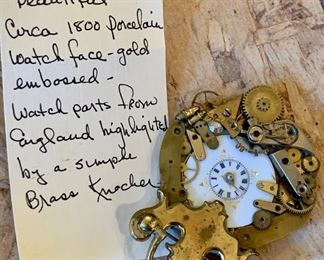 Beautiful
Circa 1800 porcelain
Watch face - gold
embossed -
Watch parts from
England highlighted
by a simple
Brass Knocker